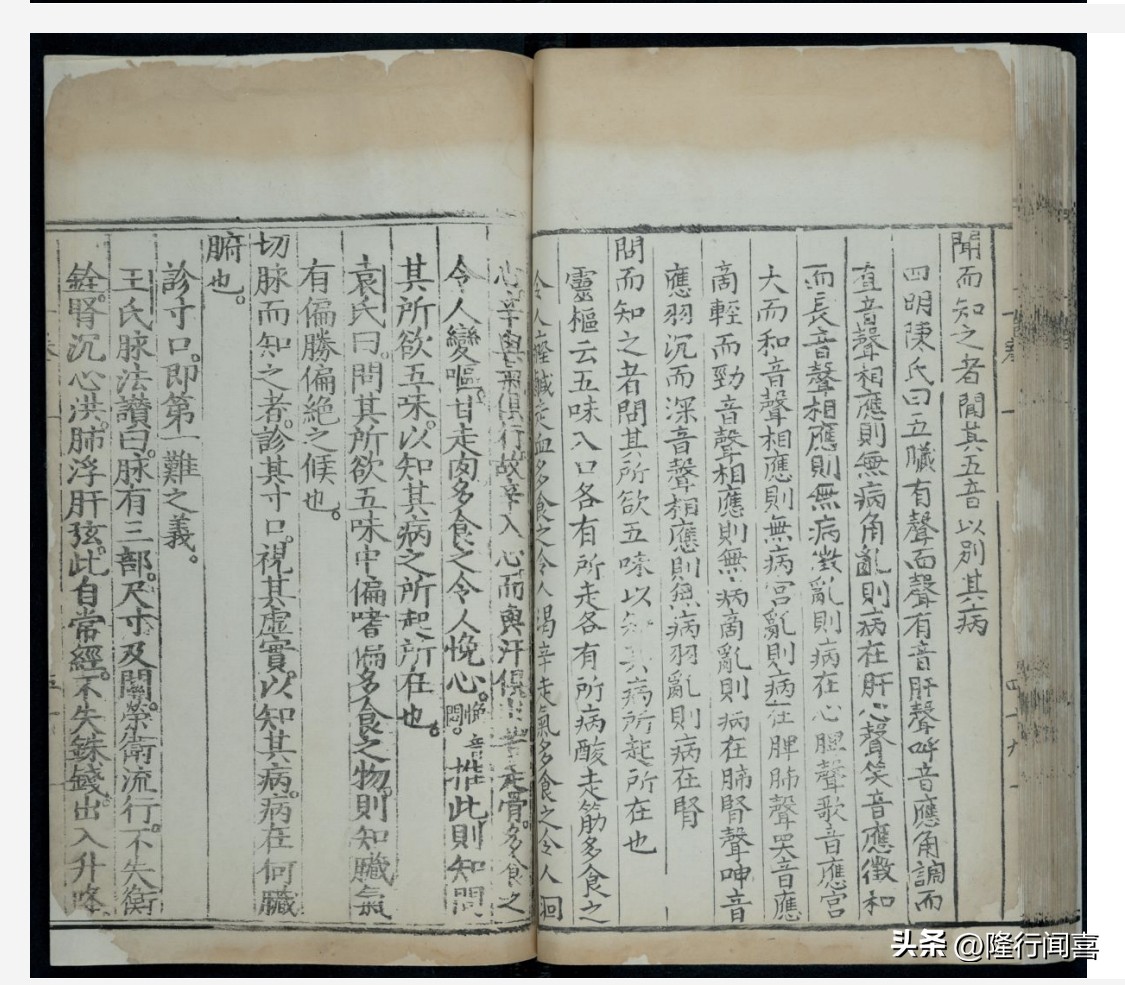 聞而知之者聞其五音以別其病
四明陳氏曰五臟有聲而聲有音肝聲呼音應角調而
直音聲相應則無病角亂則病在肝心聲笑音應徵和
而長音聲相應則無病徵亂則病在心脾聲歌音應宮
大而和音聲相應則無病宮亂則病在脾肺聲哭音應
商輕而勁音聲相應則無病商亂則病在肺腎聲呻音
應羽沉而深音聲相應則無病羽亂則病在腎
問而知之者問其所欲五味以知其病所起所在也
靈樞云五味入口各有所走各有所病酸走筋多食之
令人癃鹹走血多食之令人渴辛走氣多食之令人洞
心辛與氣俱行故辛入心而與汗俱出苦走骨多食之
令人變嘔甘走肉多食之令人悗心悗音悶推此則知問
其所欲五味以知其病之所起所在也
袁氏曰問其所欲五味中偏嗜偏多食之物則知臟氣
有偏勝偏絕之候也
切脉而知之者診其寸口視其虛實以知其病病在何臟
腑也
診寸口即第一難之義
王氏脉法讚曰脉有三部尺寸及關榮衛流行不失衡
銓腎沉心洪肺浮肝弦此自常經不失銖錢出入升降
四十九
头条 @隆行闻喜